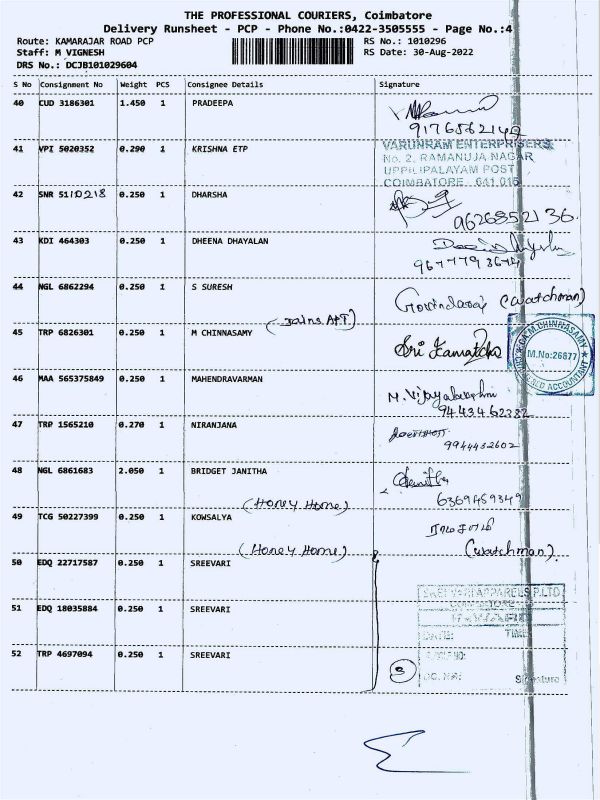 THE PROFESSIONAL COURIERS, Coimbatore
Delivery Runsheet - PCP - Phone No.:0422-3505555 - Page No.:4
Route: KAMARAJAR ROAD PCP
Staff: M VIGNESH
DRS No.: DCJB101029604
RS No.: 1010296
RS Date: 30-Aug-2022
S No Consignment No Weight PCS Consignee Details Signature
40 CUD 3186301 1.450 1 PRADEEPA
41 VPI 5020352 0.290 1 KRISHNA ETP
VARUNRAM ENTERPRISERS
No. 2, RAMANUJA NAGAR
UPPILIPALAYAM POST
COIMBATORE 641 015
42 SNR 5110218 0.250 1 DHARSHA
9626852136
43 KDI 464303 0.250 1 DHEENA DHAYALAN
44 NGL 6862294 0.250 1 S SURESH
Govindaraj (Watchman)
(Jains APT)
45 TRP 6826301 0.250 1 M CHINNASAMY
Sri Kamatcha
CA.M.CHINNASAMY
M.No:26877
CHARTERED ACCOUNTANT
46 MAA 565375849 0.250 1 MAHENDRAVARMAN
M. Vijayalakshmi
9443462382
47 TRP 1565210 0.270 1 NIRANJANA
9944432602
48 NGL 6861683 2.050 1 BRIDGET JANITHA
Janitha
6369459349
(Honey Home)
49 TCG 50227399 0.250 1 KOWSALYA
(Honey Home) (Watchman)
50 EDQ 22717587 0.250 1 SREEVARI
SREE VARI APPARELS P.LTD
COIMBATORE
INWARD
51 EDQ 18035884 0.250 1 SREEVARI
DATE: TIME:
52 TRP 4697094 0.250 1 SREEVARI
3
Signature